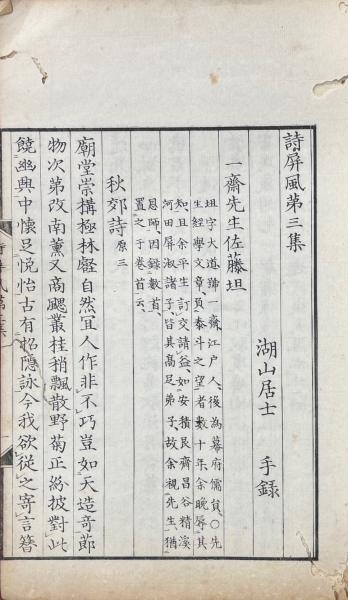 詩屏風第三集
湖山居士　手錄
一齋先生佐藤坦
坦字大道、號一齋、江戶人、後為幕府儒員、○先
生經學文章、負泰斗之望者數十年、余晚辱其
知、且余平生訂交請益、如安積艮齋昌谷精溪
河田屏淑諸子、皆其高足弟子、故余視先生、猶
恩師、因錄數首、
置之于卷首云、
秋郊詩原三
廟堂崇搆極林壑自然冝人作非不巧豈如天造奇節
物次第改南薰又商颸叢桂稍飄散野菊正紛披對此
饒幽興中懷足悅怡古有招隱詠今我欲從之寄言簪